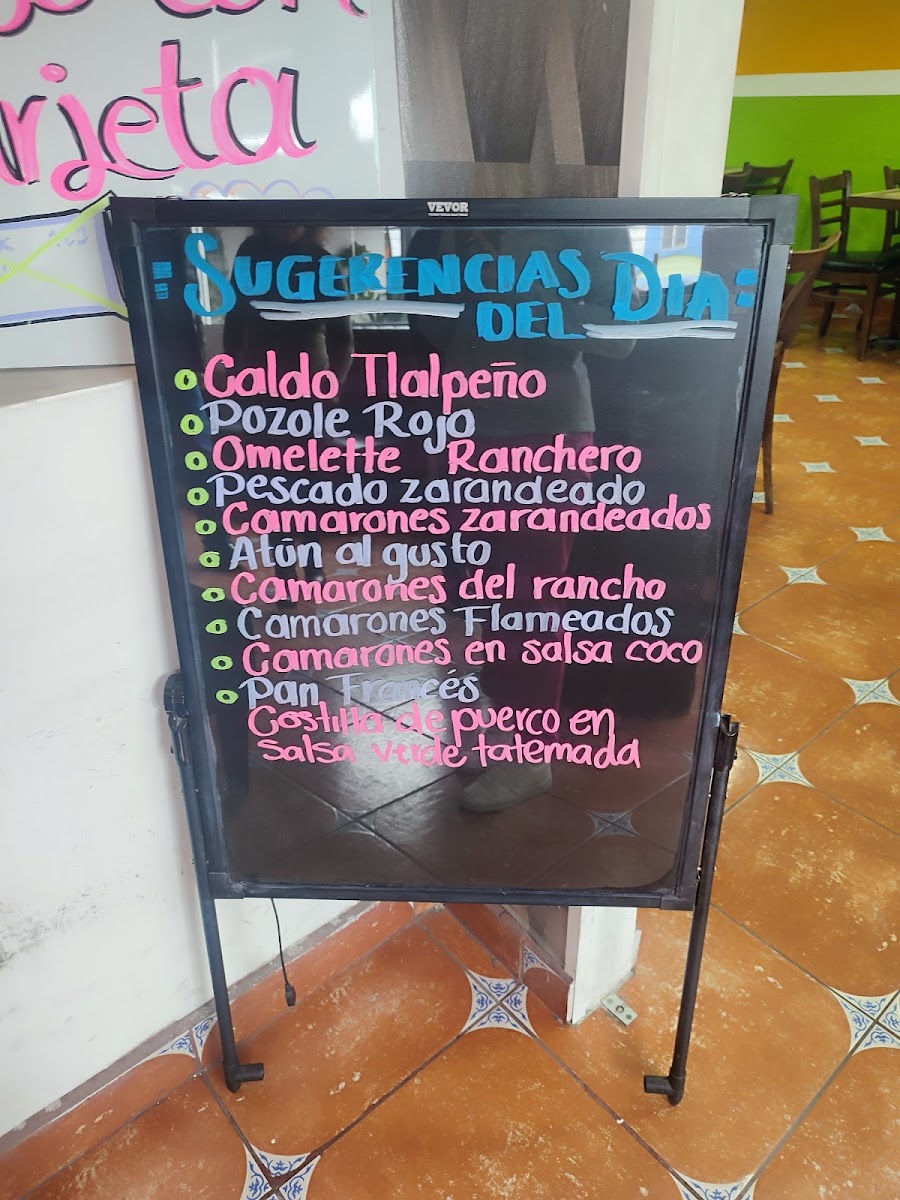 arjeta
VEVOR
SUGERENCIAS
DEL DIA
Caldo Tlalpeño
Pozole Rojo
Omelette Ranchero
Pescado zarandeado
Camarones zarandeados
Atún al gusto
Camarones del rancho
Camarones Flameados
Camarones en salsa coco
Pan Francés
Costilla de puerco en
salsa verde tatemada